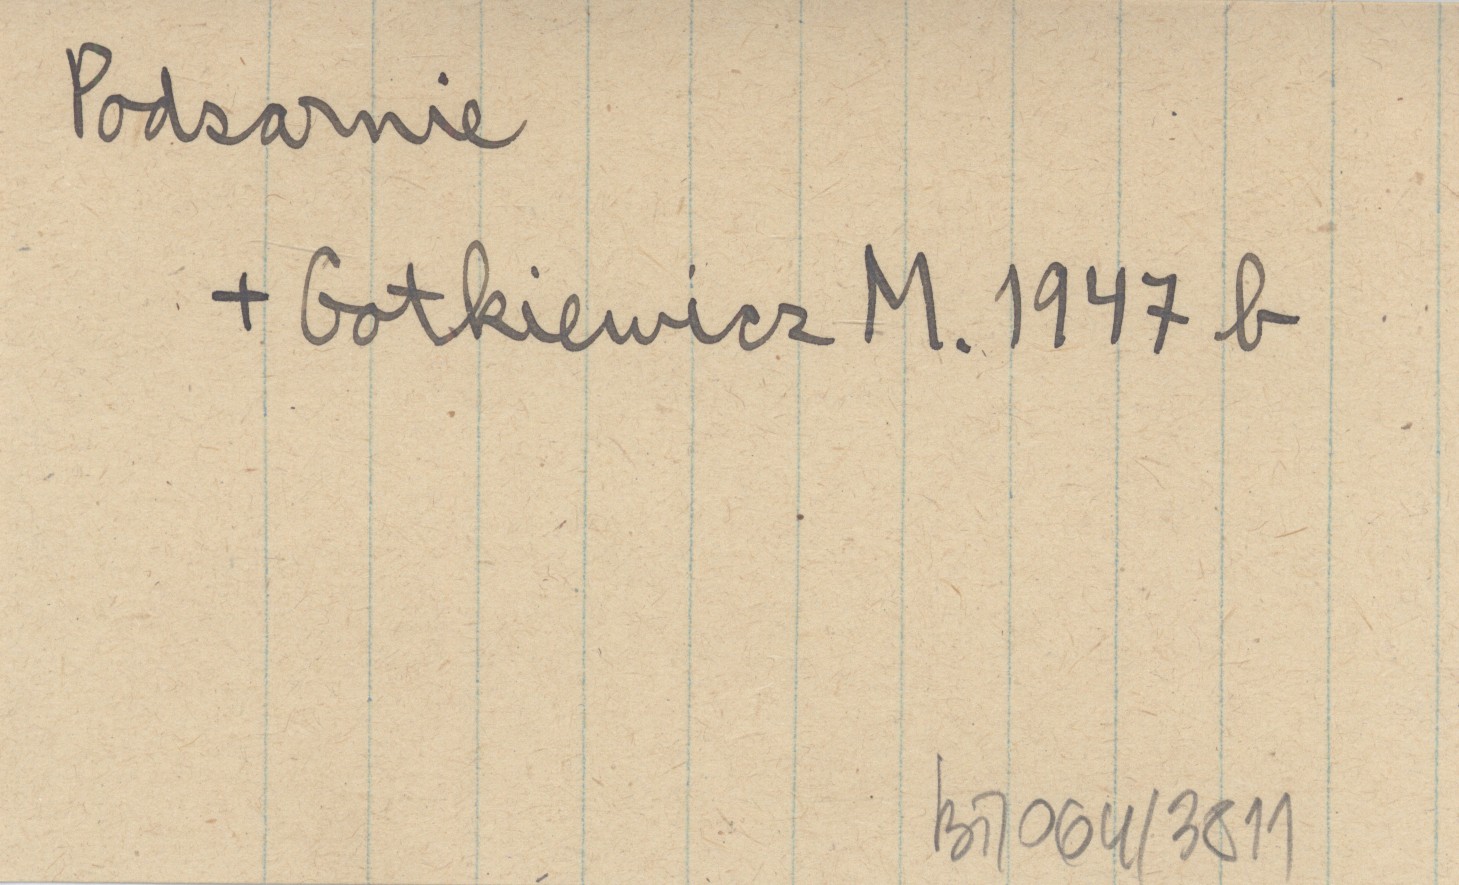 Podsarnie
+ Gotkiewicz M. 1947 b
064/3811